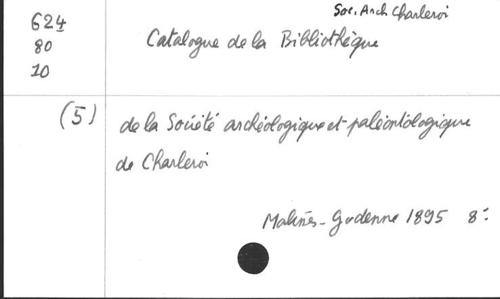 Soc. Arch Charleroi
624
80
10
Catalogue de la Bibliothèque
(5)
de la Société archéologique et paléontologique
de Charleroi
Malines - Godenne 1895 8°